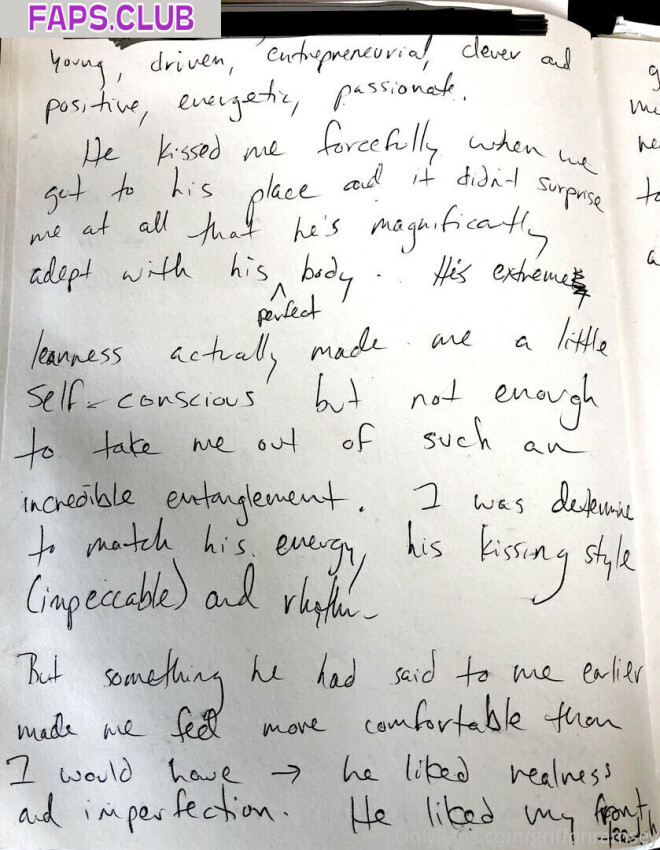 FAPS.CLUB
young, driven, entrepreneurial, clever and
positive, energetic, passionate.
He kissed me forcefully when we
got to his place and it didn't surprise
me at all that he's magnificantly
adept with his body. His extreme
perfect
leanness actually made me a little
self-conscious but not enough
to take me out of such an
incredible entanglement. I was determine
to match his energy, his kissing style
(impeccable) and rhythm
But something he had said to me earlier
made me feel more comfortable than
I would have → he liked realness
and imperfection. He liked my front